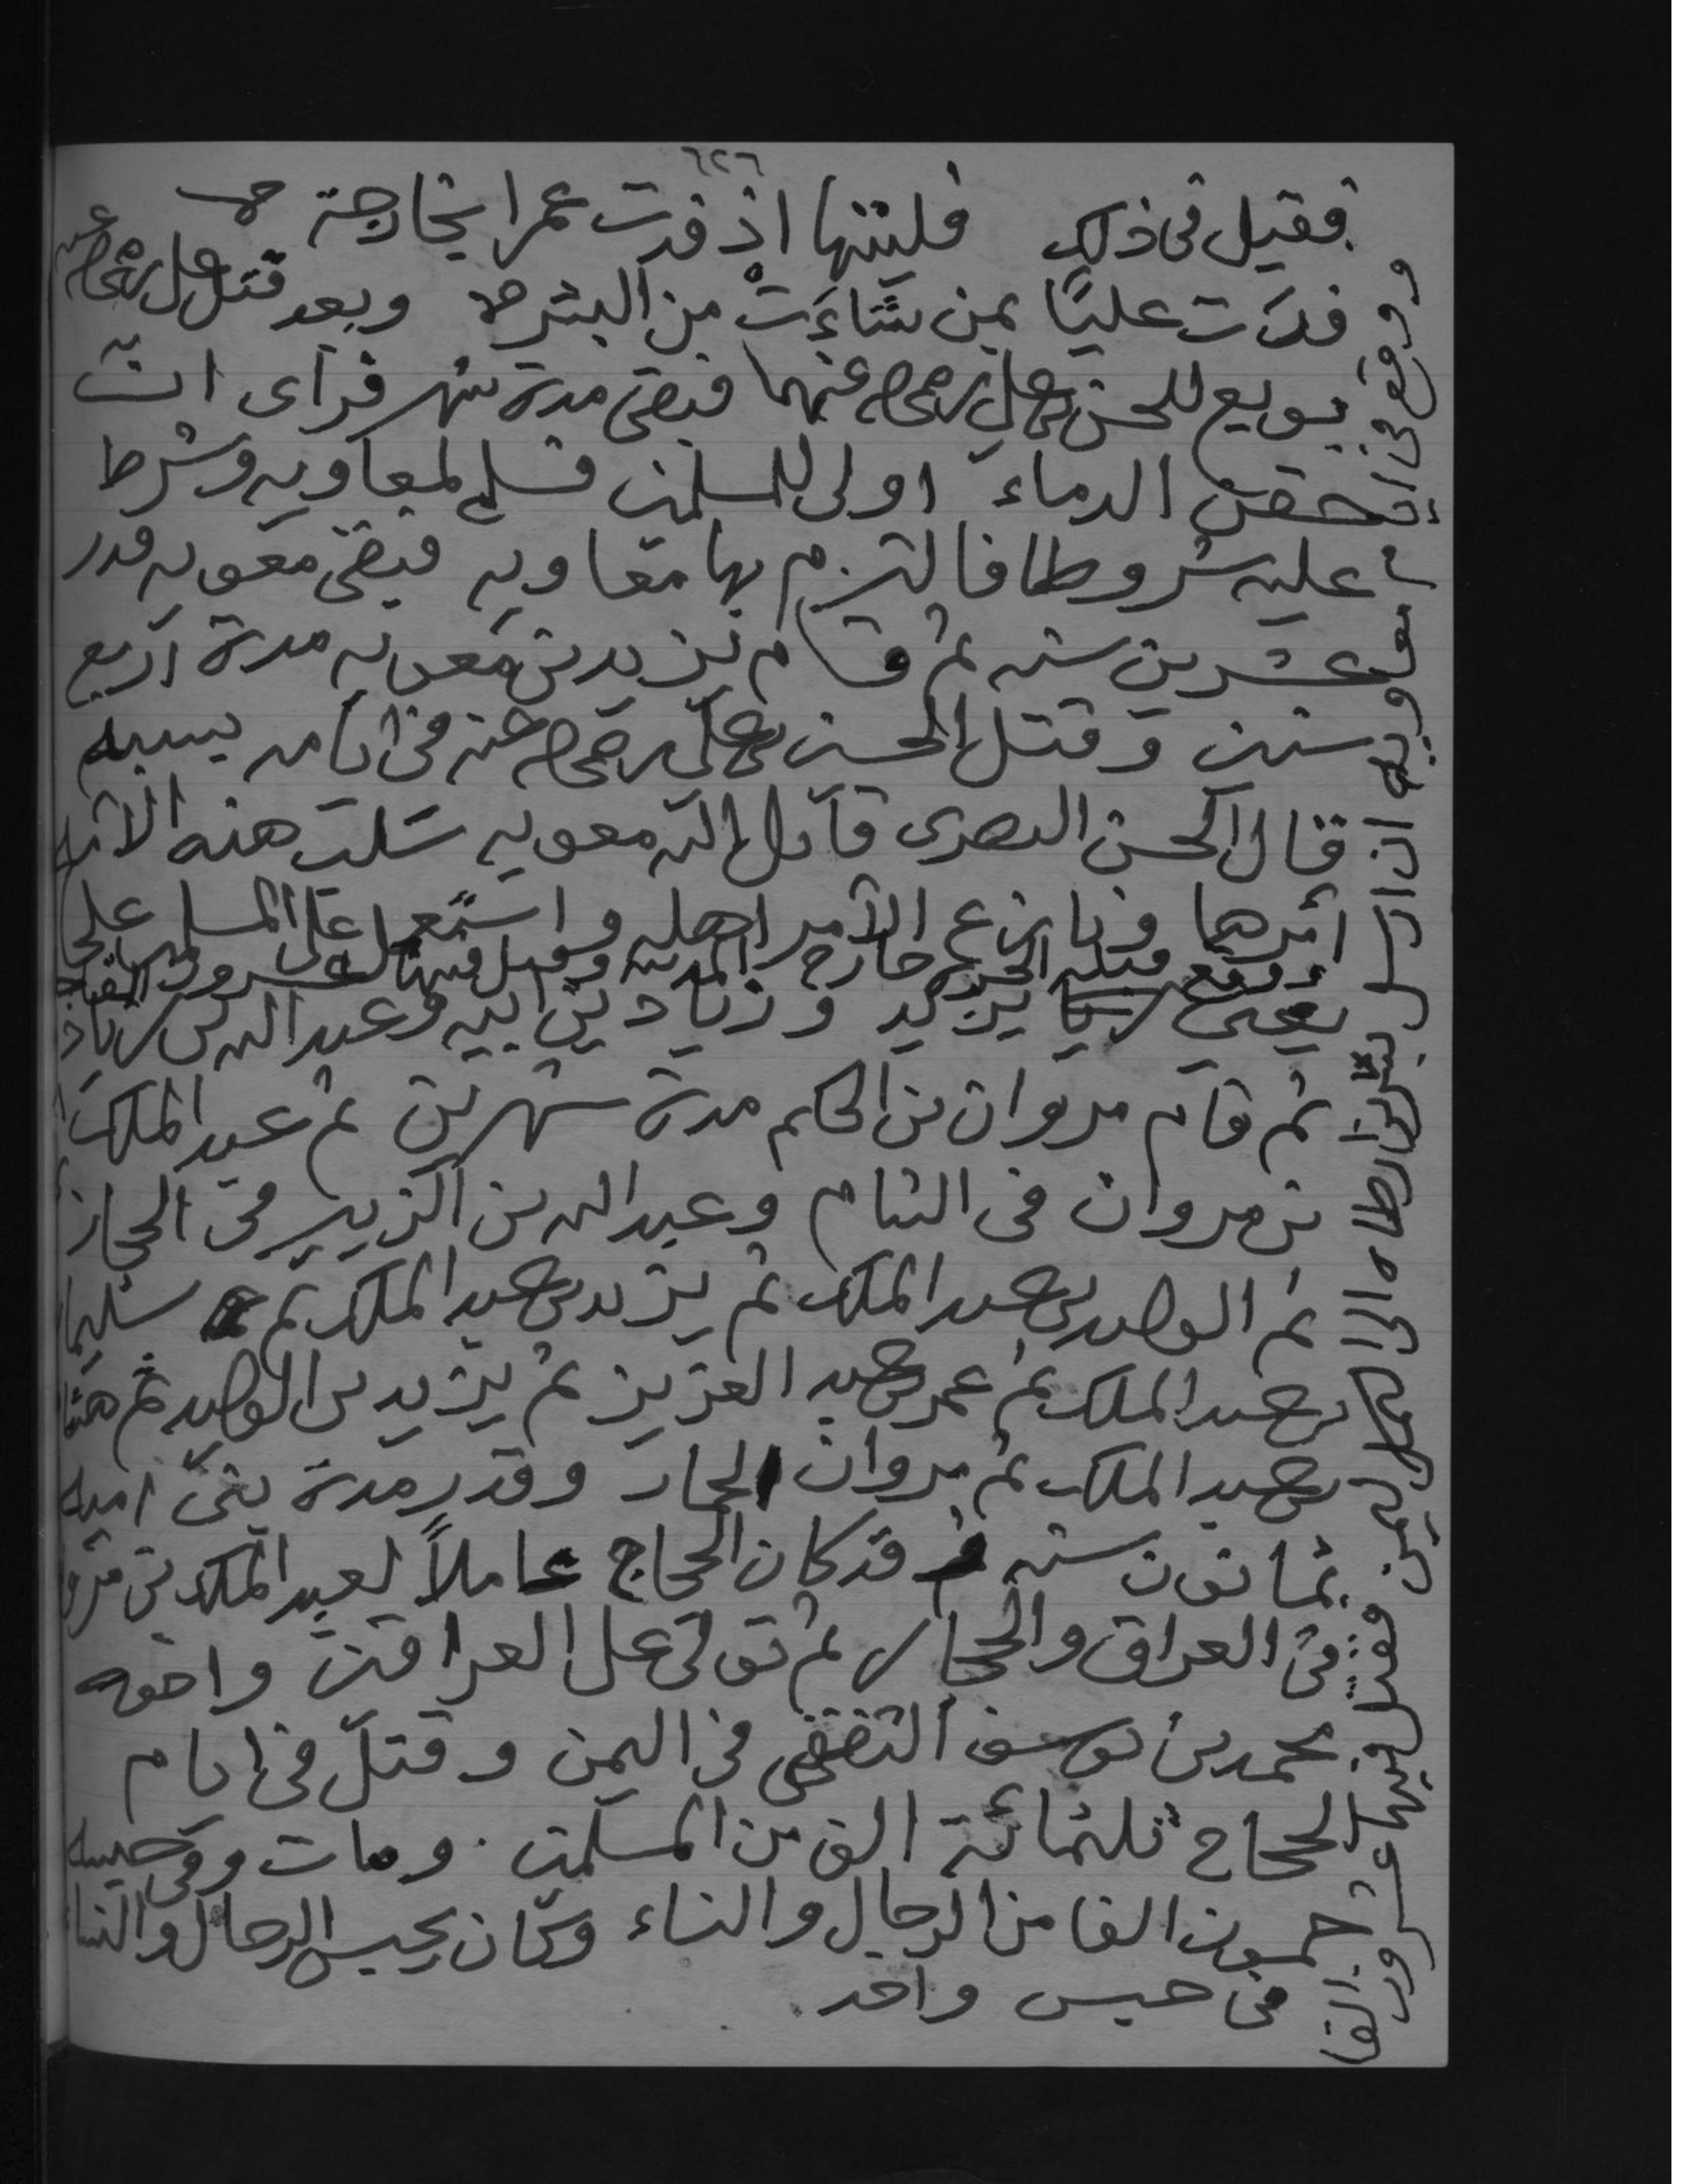 ٦٢٦
فقيل في ذلك فليتها اذ فدت عمرا بخارجة
فدت عليًا بمن شاءت من البشر وبعد قتل علي رضي الله عنه
بويع للحسن بن علي رضي الله عنهما فبقى مدة شهر فرأى ان
حقن الدماء اولى للمسلمين فسلم لمعاويه وشرط
عليه شروطا فالتزم بها معاويه فبقى معويه قدر
عشرين سنه ثم قام يزيد بن معويه مدة اربع
سنين وقتل الحسين بن علي رضي الله عنه في ايامه بسببه
قال الحسن البصرى قاتل الله معويه سلب هذه الامه
امرها ونازع الامر اهله واستعمل على المسلمين
ووقع قتله الحره خارج المدينه وقيل فيها عشرون الفا
يعني يزيد وزياد بن ابيه وعبيد الله بن زياد
ثم قام مروان بن الحكم مدة شهرين ثم عبد الملك
بن مروان في الشام وعبد الله بن الزبير في الحجاز
ثم الوليد بن عبد الملك ثم يزيد بن عبد الملك ثم سليما
بن عبد الملك ثم عمر بن عبد العزيز ثم يزيد بن الوليد ثم هشا
بن عبد الملك ثم مروان الحمار وقدر مدة بني اميه
ثمانون سنه وقد كان الحجاج عاملاً لعبد الملك بن مرو
في العراق والحجاز ثم تولى على العراقين واخوه
محمد بن يوسف الثقفي في اليمن وقتل في ايام
الحجاج ثلثمائة الف من المسلمين ومات وفي حبسه
خمسون الفا من الرجال والنساء وكان يحبس الرجال والنسا
في حبس واحد
ووقع في ايام معاويه ان ارسل بسر بن ارطاه الى اليمن فقتل فيها عشرون الفا